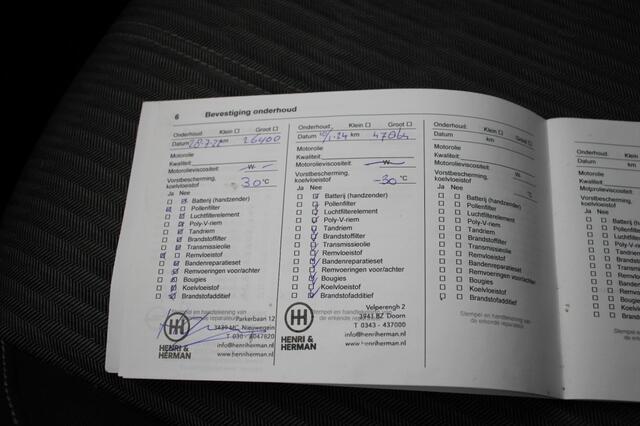 6 Bevestiging onderhoud
Onderhoud: Klein Groot
Datum 28-7-22 km 26400
Motorolie
Kwaliteit
Motorolieviscositeit: W
Vorstbescherming,
koelvloeistof 30 °C
Ja Nee
Batterij (handzender)
Pollenfilter
Luchtfilterelement
Poly-V-riem
Tandriem
Brandstoffilter
Transmissieolie
Remvloeistof
Bandenreparatieset
Remvoeringen voor/achter
Bougies
Koelvloeistof
Brandstofadditief
Stempel en handtekening van
de erkende reparateur
Parkerbaan 12
3439 MC Nieuwegein
T 030 - 6047820
info@henriherman.nl
www.henriherman.nl
HENRI &
HERMAN
Onderhoud: Klein Groot
Datum km
Motorolie
Kwaliteit:
Motorolieviscositeit: W
Vorstbescherming,
koelvloeistof -30 °C
Ja Nee
Batterij (handzender)
Pollenfilter
Luchtfilterelement
Poly-V-riem
Tandriem
Brandstoffilter
Transmissieolie
Remvloeistof
Bandenreparatieset
Remvoeringen voor/achter
Bougies
Koelvloeistof
Brandstofadditief
Stempel en handtekening van
de erkende reparateur
Velperengh 2
3941 BZ Doorn
T 0343 - 437000
info@henriherman.nl
www.henriherman.nl
HENRI &
HERMAN
Onderhoud: Klein Groot
Datum km
Motorolie
Kwaliteit:
Motorolieviscositeit: W
Vorstbescherming,
koelvloeistof °C
Ja Nee
Batterij (handzender)
Pollenfilter
Luchtfilterelement
Poly-V-riem
Tandriem
Brandstoffilter
Transmissieolie
Remvloeistof
Bandenreparatieset
Remvoeringen voor/achter
Bougies
Koelvloeistof
Brandstofadditief
Stempel en handtekening van
de erkende reparateur
Onderhoud:
Datum
Motorolie
Kwaliteit:
Motorolieviscositeit
Vorstbescherming,
koelvloeistof
Ja Nee